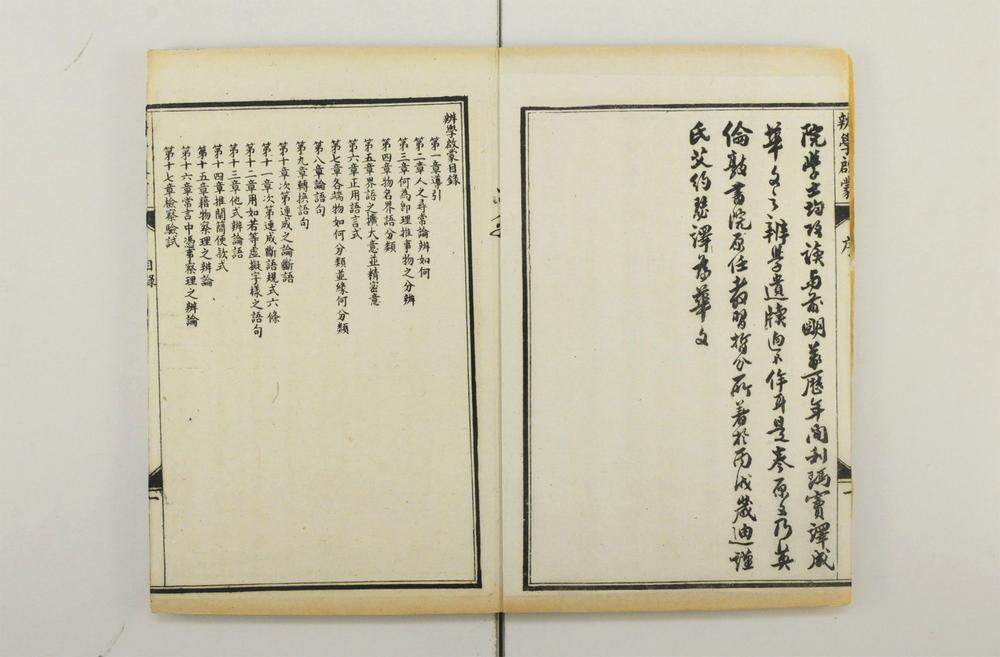 辨學啟蒙
序
院學士均攻讀與前明萬歷年間利瑪竇譯成
華文之辨學遺牘迥不侔耳是卷原文乃英
倫敦書院原任教習哲分所著於丙戌歲迪謹
氏艾約瑟譯為華文
辨學啟蒙目錄
第一章導引
第二章人之尋常論辨如何
第三章何為即理推事物之分辨
第四章物名界語分類
第五章界語之擴大意並精密意
第六章正用語言式
第七章各端物如何分類並緣何分類
第八章論語句
第九章轉換語句
第十章次第連成之論斷語
第十一章次第連成斷語規式六條
第十二章用如若等虛擬字樣之語句
第十三章他式辨論語
第十四章推闡簡便欵式
第十五章藉物察理之辨論
第十六章常言中憑事察理之辨論
第十七章檢察驗試
目錄
一